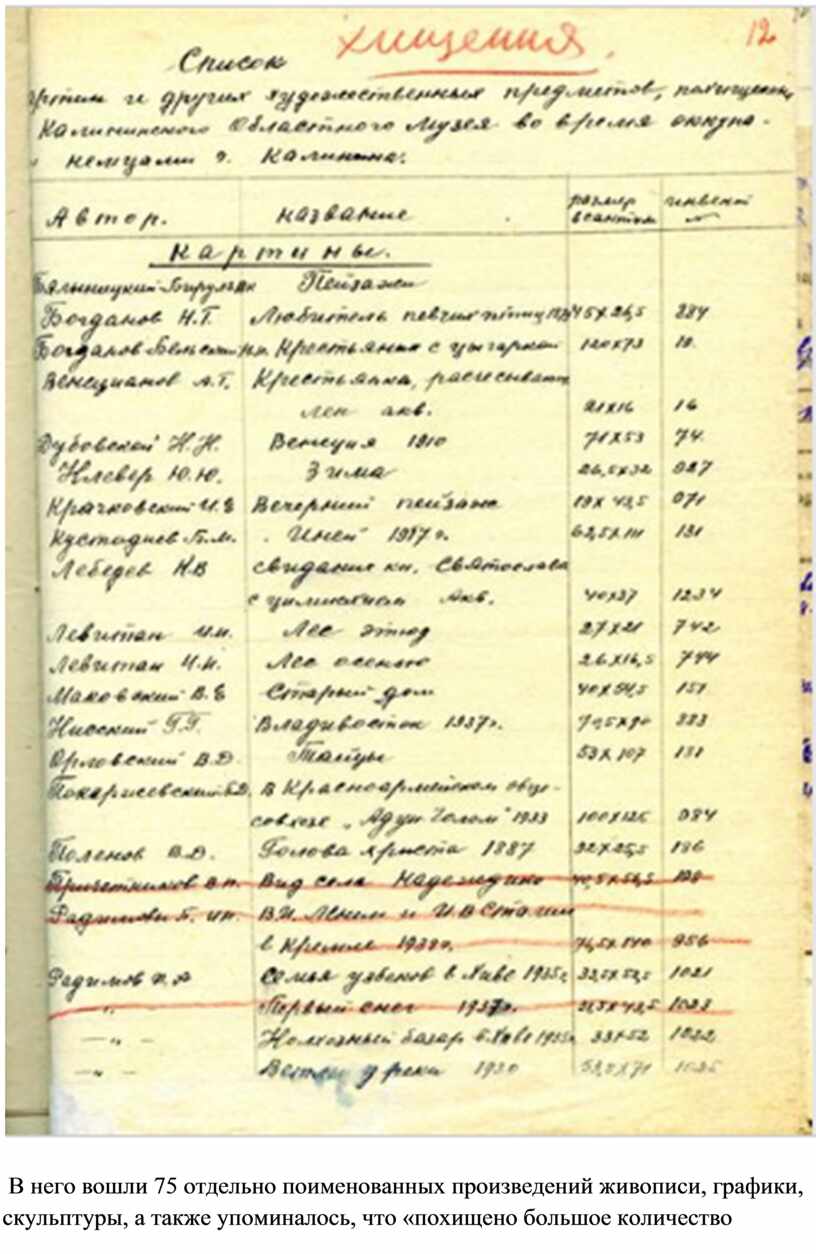 хищения.
12
Список
картин и других художественных предметов, похищенных
Калининского Областного Музея во время оккупа-
немцами г. Калинина.
Автор. название размер в сантим инвент №
Картины.
Бялыницкий-Бируля Пейзажи
Богданов Н.Г. Любитель певчих птиц 45х26,5 284
Богданов Бельский Крестьянин с цыгаркой 120х73
Венецианов А.Г. Крестьянка, расчесывает
лен акв. 21х16 16
Дубовской Н.Н. Венеция 1910 71х53 74.
Клевер Ю.Ю. Зима 26,5х32 927
Крачковский И.Е Вечерний пейзаж 19х43,5 071
Кустодиев Б.М. Иней 1917г. 62,5х111 131
Лебедев К.В свидание кн. Святослава
с цимисхием Акв. 40х37 1234
Левитан И.И. Лес этюд 27х21 742
Левитан И.И. Лес осенью 26х16,5 744
Маковский В.Е Старый дом 40х54,5 151
Нисский Г.Г. Владивосток 1937г. 883
Орловский В.Д. 53х107 181
Покаржевский П.Д. В Красноармейском овце-
совхозе „Адун Чолом" 1933 100х126 984
Поленов В.Д. Голова христа 1887 32х25,5 186
Причетников В.П. Вид села Надеждино 198
Радимов В.И. Ленин и И.В Сталин
в Кремле 1938г. 956
Радимов П.А семья узбеков в Хиве 1935г 1021
" Первый снег 1937г. 1023
— " — Колхозный базар в Хиве 1935г. 33х52 1022
— " — Ветлы у реки 1930 53,5х71
В него вошли 75 отдельно поименованных произведений живописи, графики,
скульптуры, а также упоминалось, что «похищено большое количество